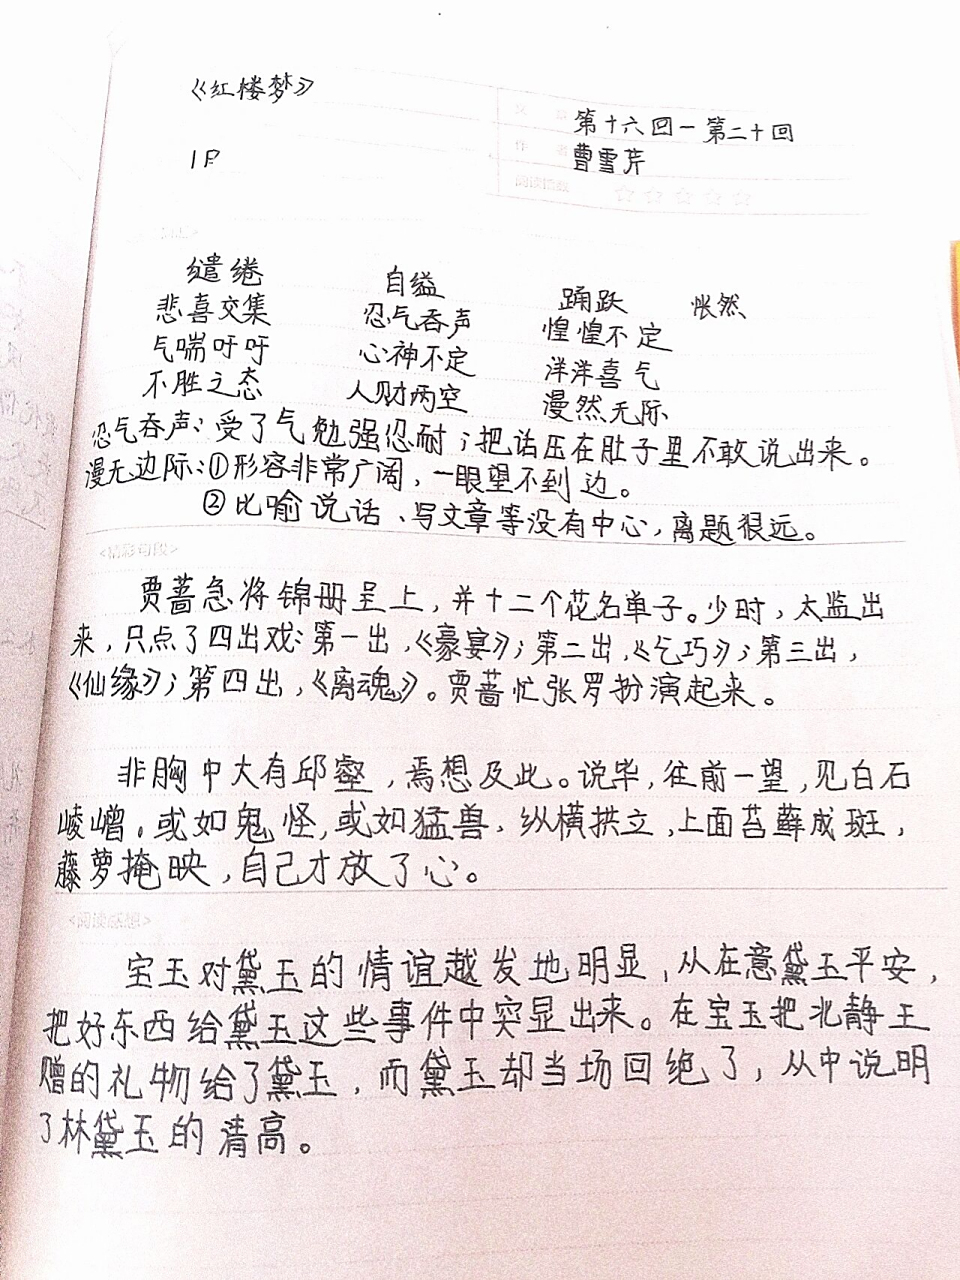 《红楼梦》
第十六回一第二十回
曹雪芹
缱绻 自缢 踊跃 怅然
悲喜交集 忍气吞声 惶惶不定
气喘吁吁 心神不定 洋洋喜气
不胜之态 人财两空 漫然无际
忍气吞声：受了气勉强忍耐；把话压在肚子里不敢说出来。
漫无边际：①形容非常广阔，一眼望不到边。
②比喻说话、写文章等没有中心，离题很远。
<精彩句段>
贾蔷急将锦册呈上，并十二个花名单子。少时，太监出
来，只点了四出戏：第一出，《豪宴》；第二出，《乞巧》；第三出，
《仙缘》；第四出，《离魂》。贾蔷忙张罗扮演起来。
非胸中大有邱壑，焉想及此。说毕，往前一望，见白石
崚嶒，或如鬼怪，或如猛兽，纵横拱立，上面苔藓成斑，
藤萝掩映，自己才放了心。
<阅读感想>
宝玉对黛玉的情谊越发地明显，从在意黛玉平安，
把好东西给黛玉这些事件中突显出来。在宝玉把北静王
赠的礼物给了黛玉，而黛玉却当场回绝了，从中说明
了林黛玉的清高。